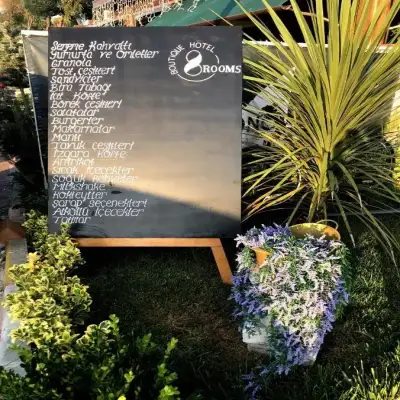 Serpme Kahvaltı
Yumurta ve Omletler
Granola
Tost çeşitleri
Sandviçler
Bira Tabağı
İçli Köfte
Börek çeşitleri
Salatalar
Burgerler
Makarnalar
Mantı
Tavuk çeşitleri
Izgara Köfte
Antrikot
Sıcak içecekler
Soğuk içecekler
Milkshake
Kokteyller
Şarap seçenekleri
Alkollü içecekler
Tatlılar
BOUTIQUE HOTEL
8 ROOMS